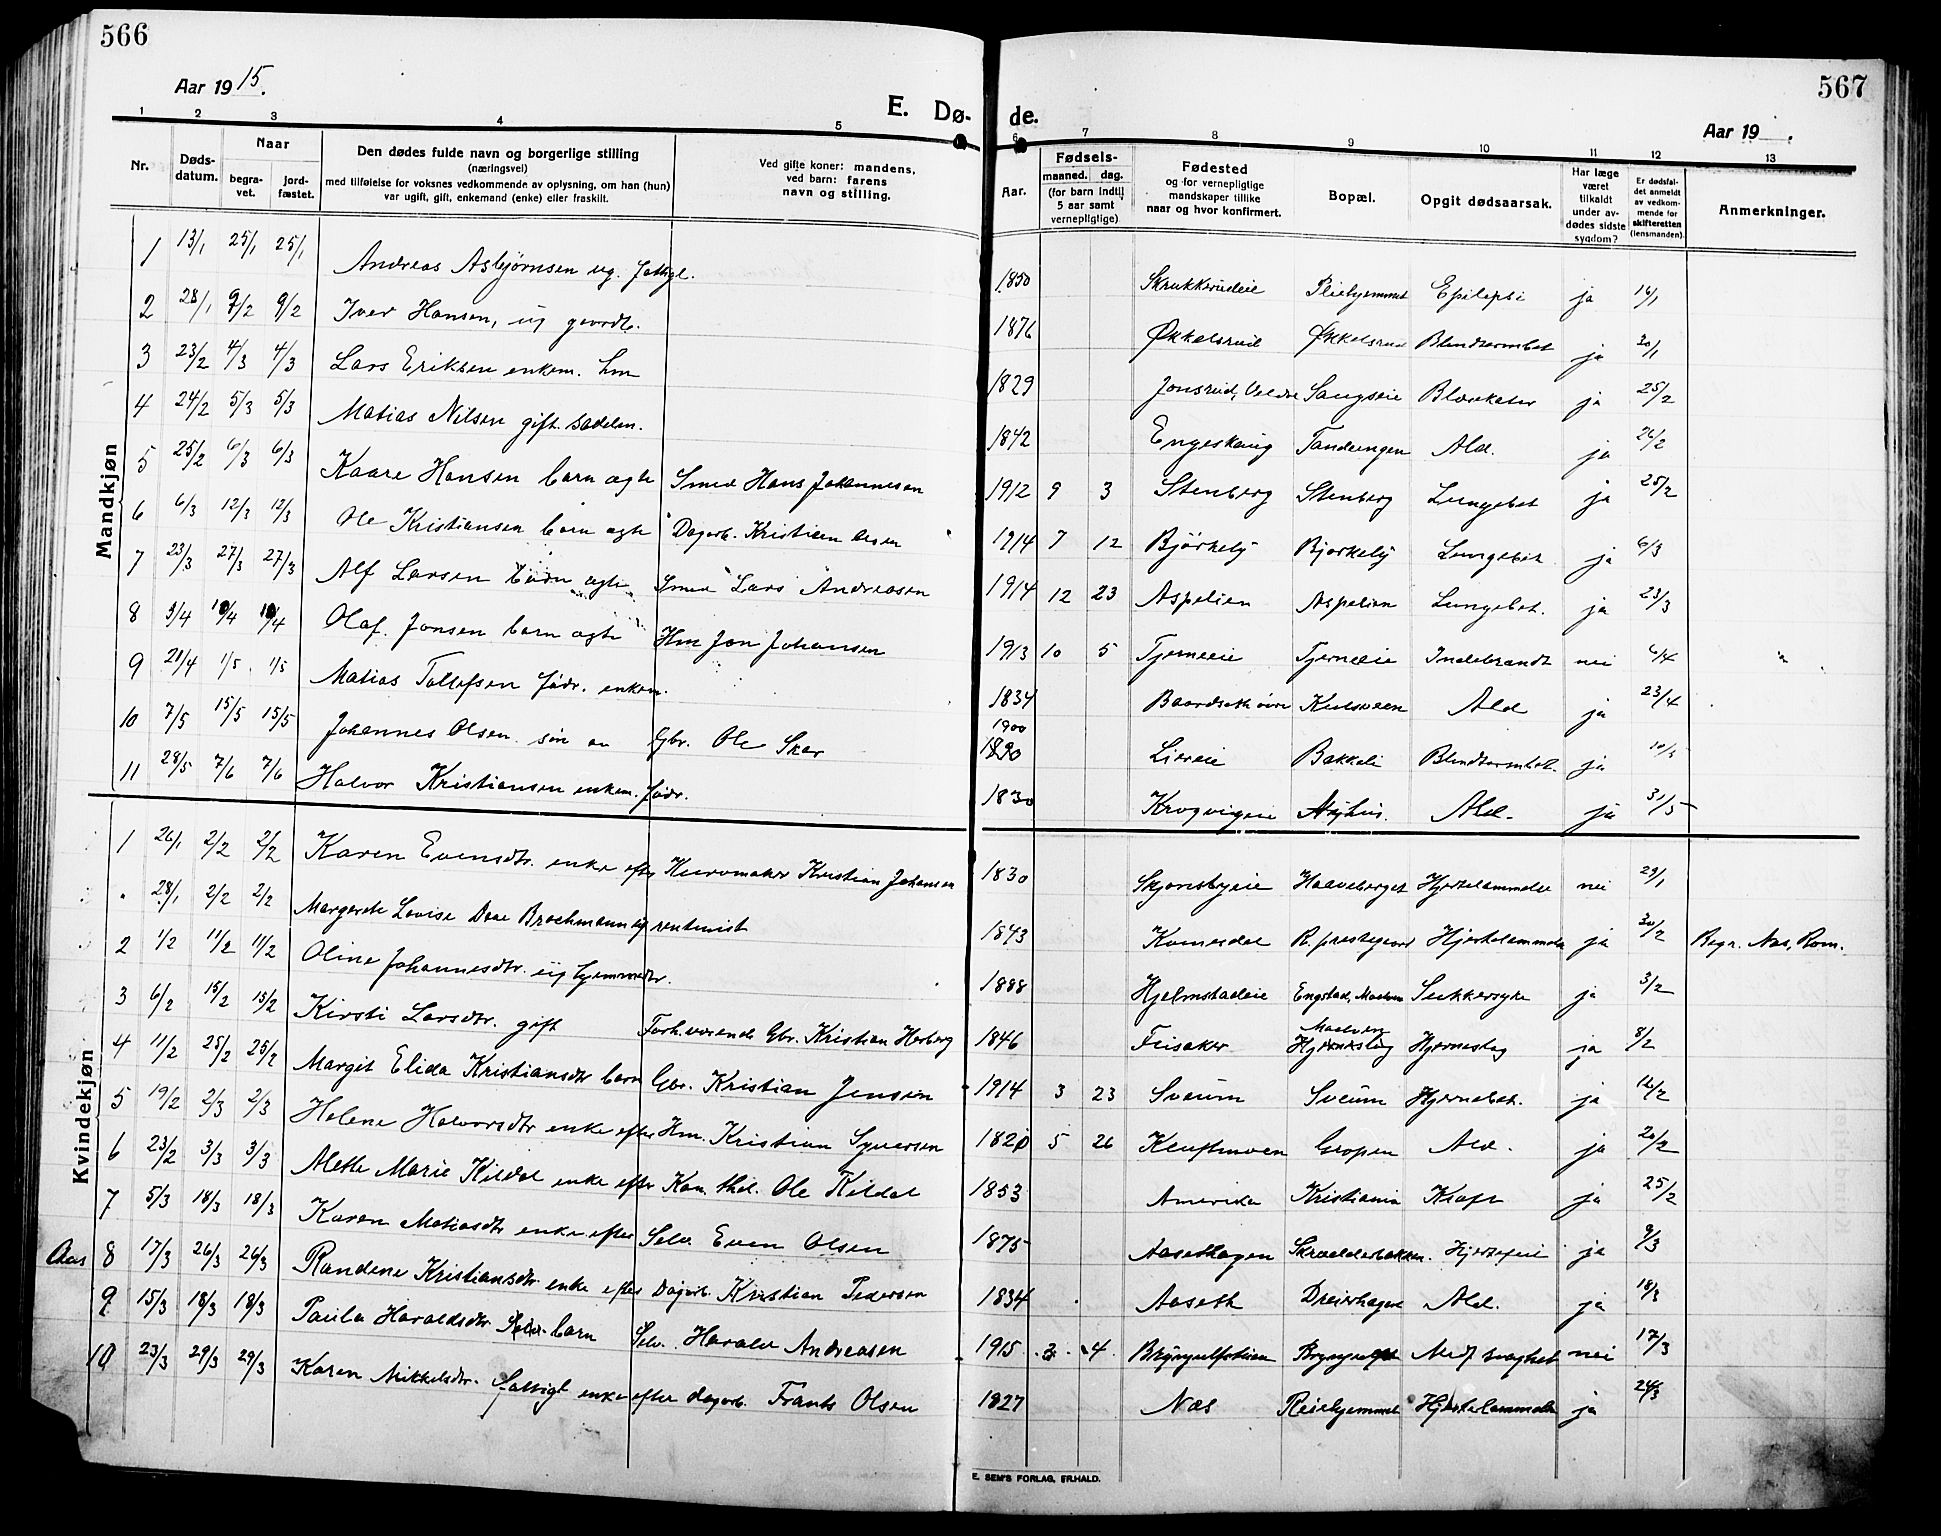 566
567
Aar 1915.
E. Dø- de.
Aar 19 .
1 2 3 4 5 6 7 8 9 10 11 12 13
Nr.
Døds-datum.
Naar
begra-vet.
jord-fæstet.
Den dødes fulde navn og borgerlige stilling
(næringsvei)
med tilføielse for voksnes vedkommende av oplysning, om han (hun)
var ugift, gift, enkemand (enke) eller fraskilt.
Ved gifte koner: mandens,
ved barn: farens
navn og stilling.
Aar.
Fødsels-
maaned. dag.
(for barn indtil
5 aar samt
vernepligtige)
Fødested
og for vernepligtige
mandskaper tillike
naar og hvor konfirmert.
Bopæl.
Opgit dødsaarsak.
Har læge
været
tilkaldt
under av-
dødes sidste
sygdom?
Er dødsfal-
det anmeldt
av vedkom-
mende for
skifteretten
(lensmanden).
Anmerkninger.
Mandkjøn
1 13/1 25/1 25/1 Andreas Asbjørnsen ug. fattigl. 1850 Skrukkerudeie Pleiehjemmet Epilepsi ja 16/1
2 28/1 9/2 9/2 Iver Hansen, ug gaardb. 1876 Økkelsrud Økkelsrud Blindtarmbet ja 30/1
3 23/2 4/3 4/3 Lars Eriksen enkem. hm 1829 Jonsrud, Veldre Saugseie Blærekatar ja 25/2
4 24/2 5/3 5/3 Matias Nilsen gift sadelm. 1842 Engeskaug Tandengen Ald. ja 26/2
5 25/2 6/3 6/3 Kaare Hansen barn ægte Smed Hans Johannesen 1912 9 3 Stenberg Stenberg Lungebet ja 25/2
6 6/3 12/3 12/3 Ole Kristiansen barn ægte Dagarb. Kristian Olsen 1914 7 12 Bjørkely Bjørkely Lungebet ja 6/3
7 23/3 27/3 27/3 Alf Larsen barn ægte Smed Lars Andreasen 1914 12 23 Aspelien Aspelien Lungebet. ja 23/3
8 3/4 10/4 10/4 Olaf Jonsen barn ægte Hm Jon Johansen 1913 10 5 Tjerneeie Tjerneeie Indebrændt nei 6/4
9 21/4 1/5 1/5 Matias Tollefsen fødr. enkem. 1834 Kulsveen Ald ja 23/4
10 7/5 15/5 15/5 Johannes Olsen søn av Gbr. Ole Skar 1900 1890 Liereie Bakkeli Blindtarmbet. ja 10/5
11 28/5 7/6 7/6 Halvor Kristiansen enkem. fødr. 1830 Krogvigeie Nyhus. Ald. ja 31/5
Kvindekjøn
1 26/1 2/2 2/2 Karen Evensdtr. enke efter Kurvmaker Kristian Johansen 1830 Skjønsbyeie Haaveberget Hjertelammelse nei 29/1
" 28/1 2/2 2/2 Margrete Lovise Daae Brochmann ug rentenist 1843 Kvinesdal R. prestegaard Hjertelammelse ja 30/2 Begr. Nas, Rom.
2 1/2 11/2 11/2 Oline Johannesdtr. ug hjemmedtr. 1888 Hjelmstadeie Engstad, Maelum Sukkersyke ja 3/2
3 6/2 15/2 15/2 Kirsti Larsdtr. gift Forh.værende Gbr. Kristian Herberg 1846 Feisaker Hjerneslag ja 8/2
4 11/2 25/2 25/2 Margit Elida Kristiansdtr barn Gbr. Kristian Jensen 1914 3 23 Sveum Sveum Hjernebet. ja 12/2
5 19/2 2/3 2/3 Helene Halvorsdtr enke efter Hm. Kristian Syversen 1820 5 26 Kluftmoen Gropen Ald. ja 20/2
6 23/2 3/3 3/3 Mette Marie Kildal enke efter Kan. thel. Ole Kildal 1853 Amerika Kristiania Kræft ja 25/2
7 5/3 18/3 18/3 Karen Matiasdtr enke efter Selv. Even Olsen 1875 Aasethagen Skrædderbakken. Hjertefeil ja 9/3
Aas 8 17/3 26/3 26/3 Randine Kristiansdtr enke efter Dagarb. Kristian Pedersen 1834 Aaseth Dreierhagen Ald. ja 18/3
9 15/3 18/3 18/3 Paula Haraldsdtr barn Selv. Harald Andreasen 1915 2 4 Medf svaghet nei 17/3
10 23/3 29/3 29/3 Karen Mikkelsdtr. fattigl enke efter dagarb. Frants Olsen 1827 Næs Pleiehjemmet Hjertelammelse ja 24/3
E. SEM'S FORLAG, FR.HALD.